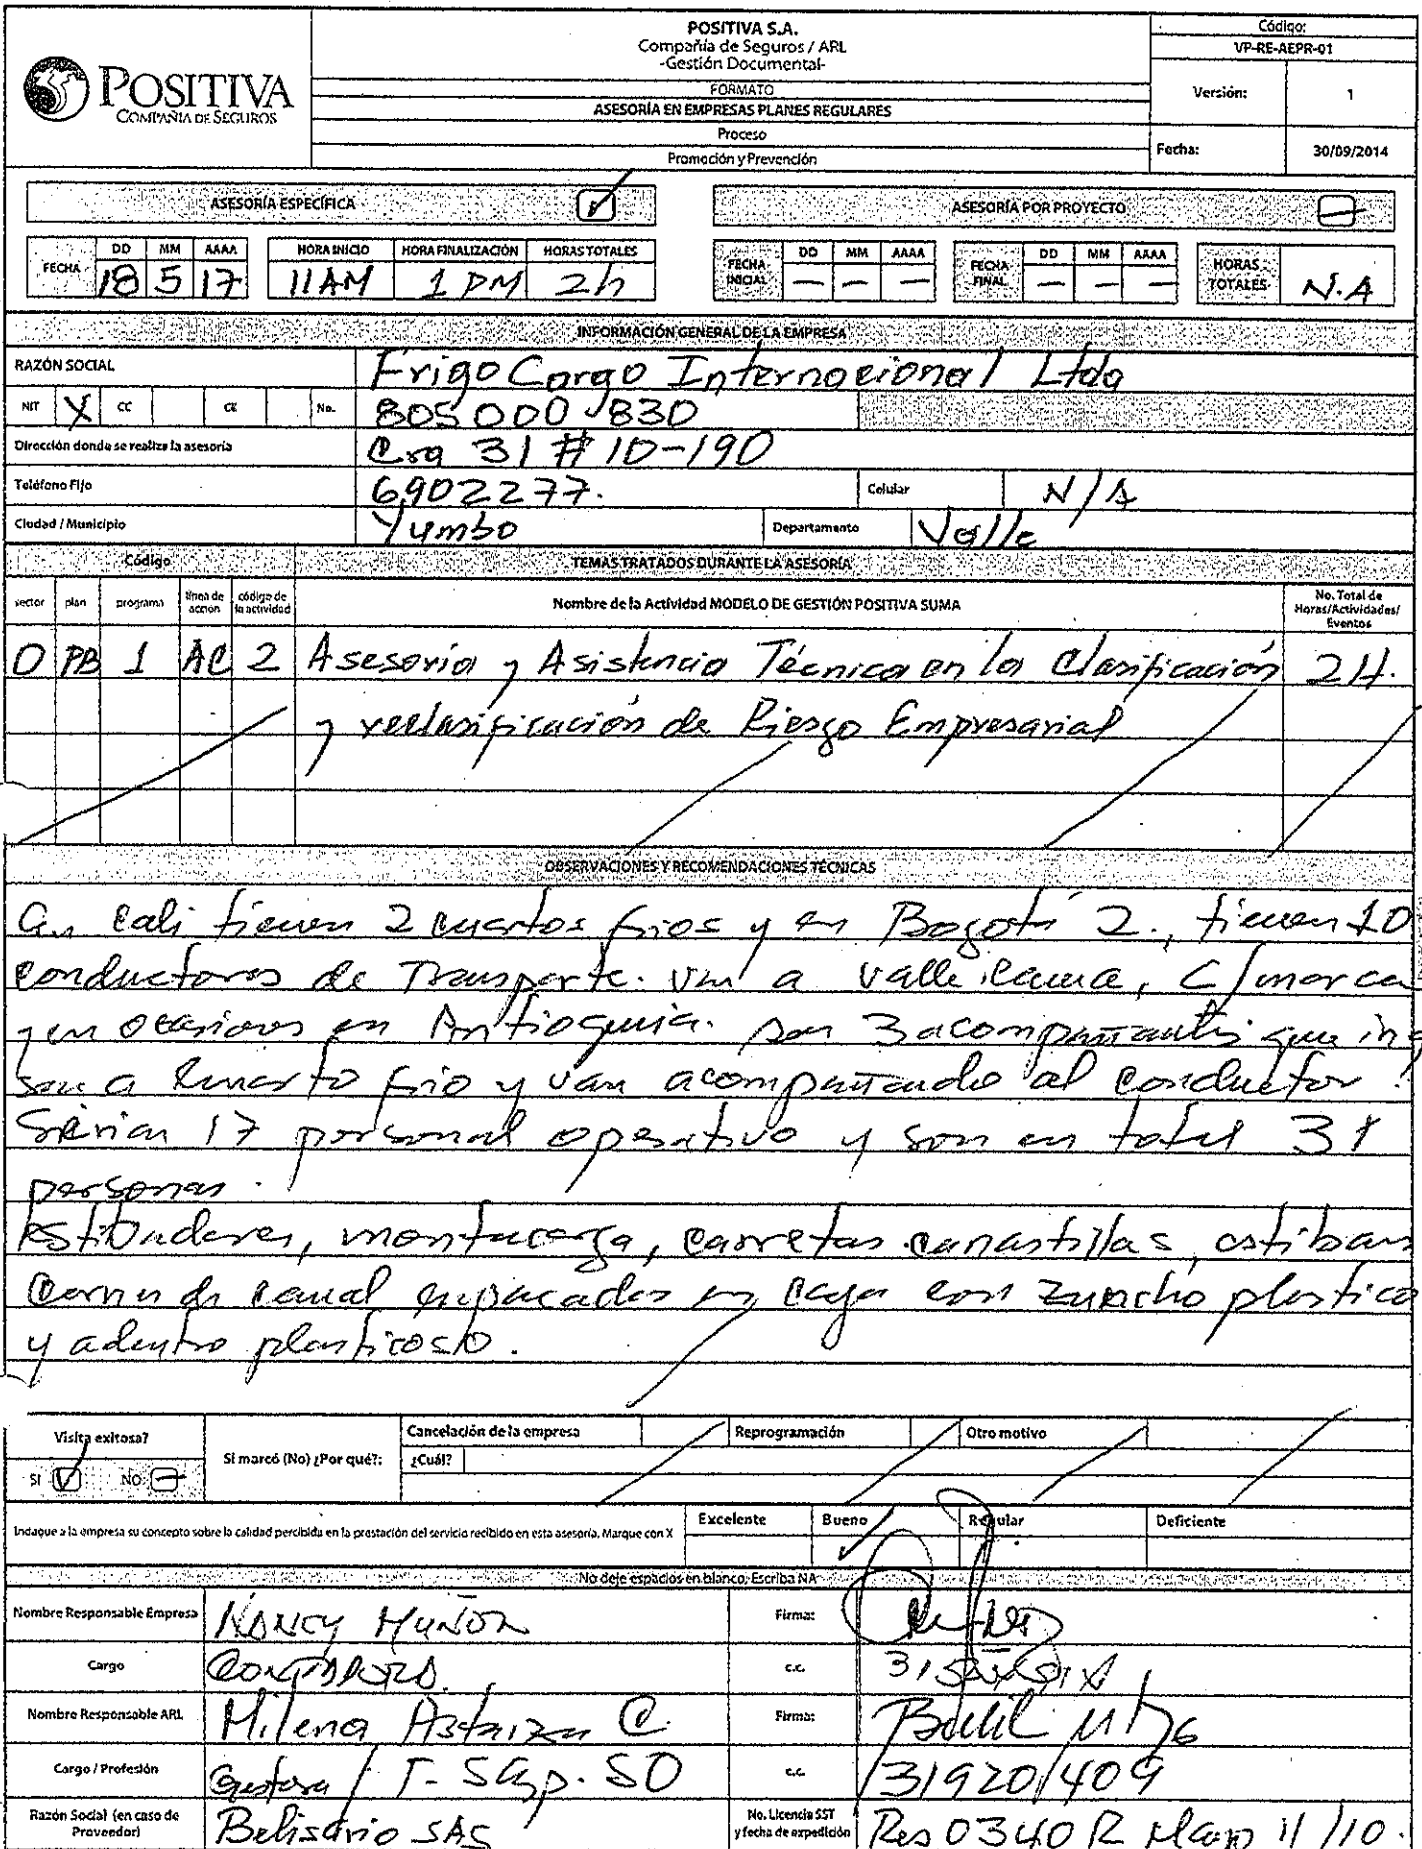 POSITIVA
COMPAÑÍA DE SEGUROS
POSITIVA S.A.
Compañía de Seguros / ARL
-Gestión Documental-
FORMATO
ASESORÍA EN EMPRESAS PLANES REGULARES
Proceso
Promoción y Prevención
Código:
VP-RE-AEPR-01
Versión: 1
Fecha: 30/09/2014
ASESORÍA ESPECÍFICA
ASESORÍA POR PROYECTO
FECHA DD MM AAAA HORA INICIO HORA FINALIZACIÓN HORAS TOTALES
18 5 17 11AM 1 PM 2h
FECHA INICIAL DD MM AAAA FECHA FINAL DD MM AAAA HORAS TOTALES
— — — — — — N.A
INFORMACIÓN GENERAL DE LA EMPRESA
RAZÓN SOCIAL Frigo Cargo Internacional Ltda
NIT X CC CE No. 805000830
Dirección donde se realiza la asesoría Cra 31 # 10-190
Teléfono Fijo 6902277. Celular N/A
Ciudad / Municipio Yumbo Departamento Valle
Código TEMAS TRATADOS DURANTE LA ASESORÍA
sector plan programa línea de acción código de la actividad Nombre de la Actividad MODELO DE GESTIÓN POSITIVA SUMA No. Total de Horas/Actividades/Eventos
0 PB 1 AC 2 Asesoría y Asistencia Técnica en la Clasificación 2H.
y reclasificación de Riesgo Empresarial
OBSERVACIONES Y RECOMENDACIONES TÉCNICAS
En Cali tienen 2 cuartos frios y en Bogotá 2., tienen 10
conductores de Transporte. Van a Valle, Cauca, C/marca
y en ocasiones en Antioquia. son 3 acompañantes que ing
san a cuarto frio y van acompañando al conductor.
Serian 17 personal operativo y son en total 31
personas.
Estibadores, montacarga, carretas canastillas, estibas
Carne de canal empacados en caja con zuncho plastico
y adentro plastico
Visita exitosa?
SI NO
Si marcó (No) ¿Por qué?:
Cancelación de la empresa Reprogramación Otro motivo
¿Cuál?
Indague a la empresa su concepto sobre la calidad percibida en la prestación del servicio recibido en esta asesoría. Marque con X
Excelente Bueno Regular Deficiente
No deje espacios en blanco, Escriba NA
Nombre Responsable Empresa NANCY MUÑOZ Firma:
Cargo CONTADORA. c.c.
Nombre Responsable ARL Milena Astaiza C. Firma:
Cargo / Profesión Gestora / T- SO c.c. 31920409
Razón Social (en caso de Proveedor) Belisario SAS No. Licencia SST y fecha de expedición Res 0340 R Mayo 11/10.